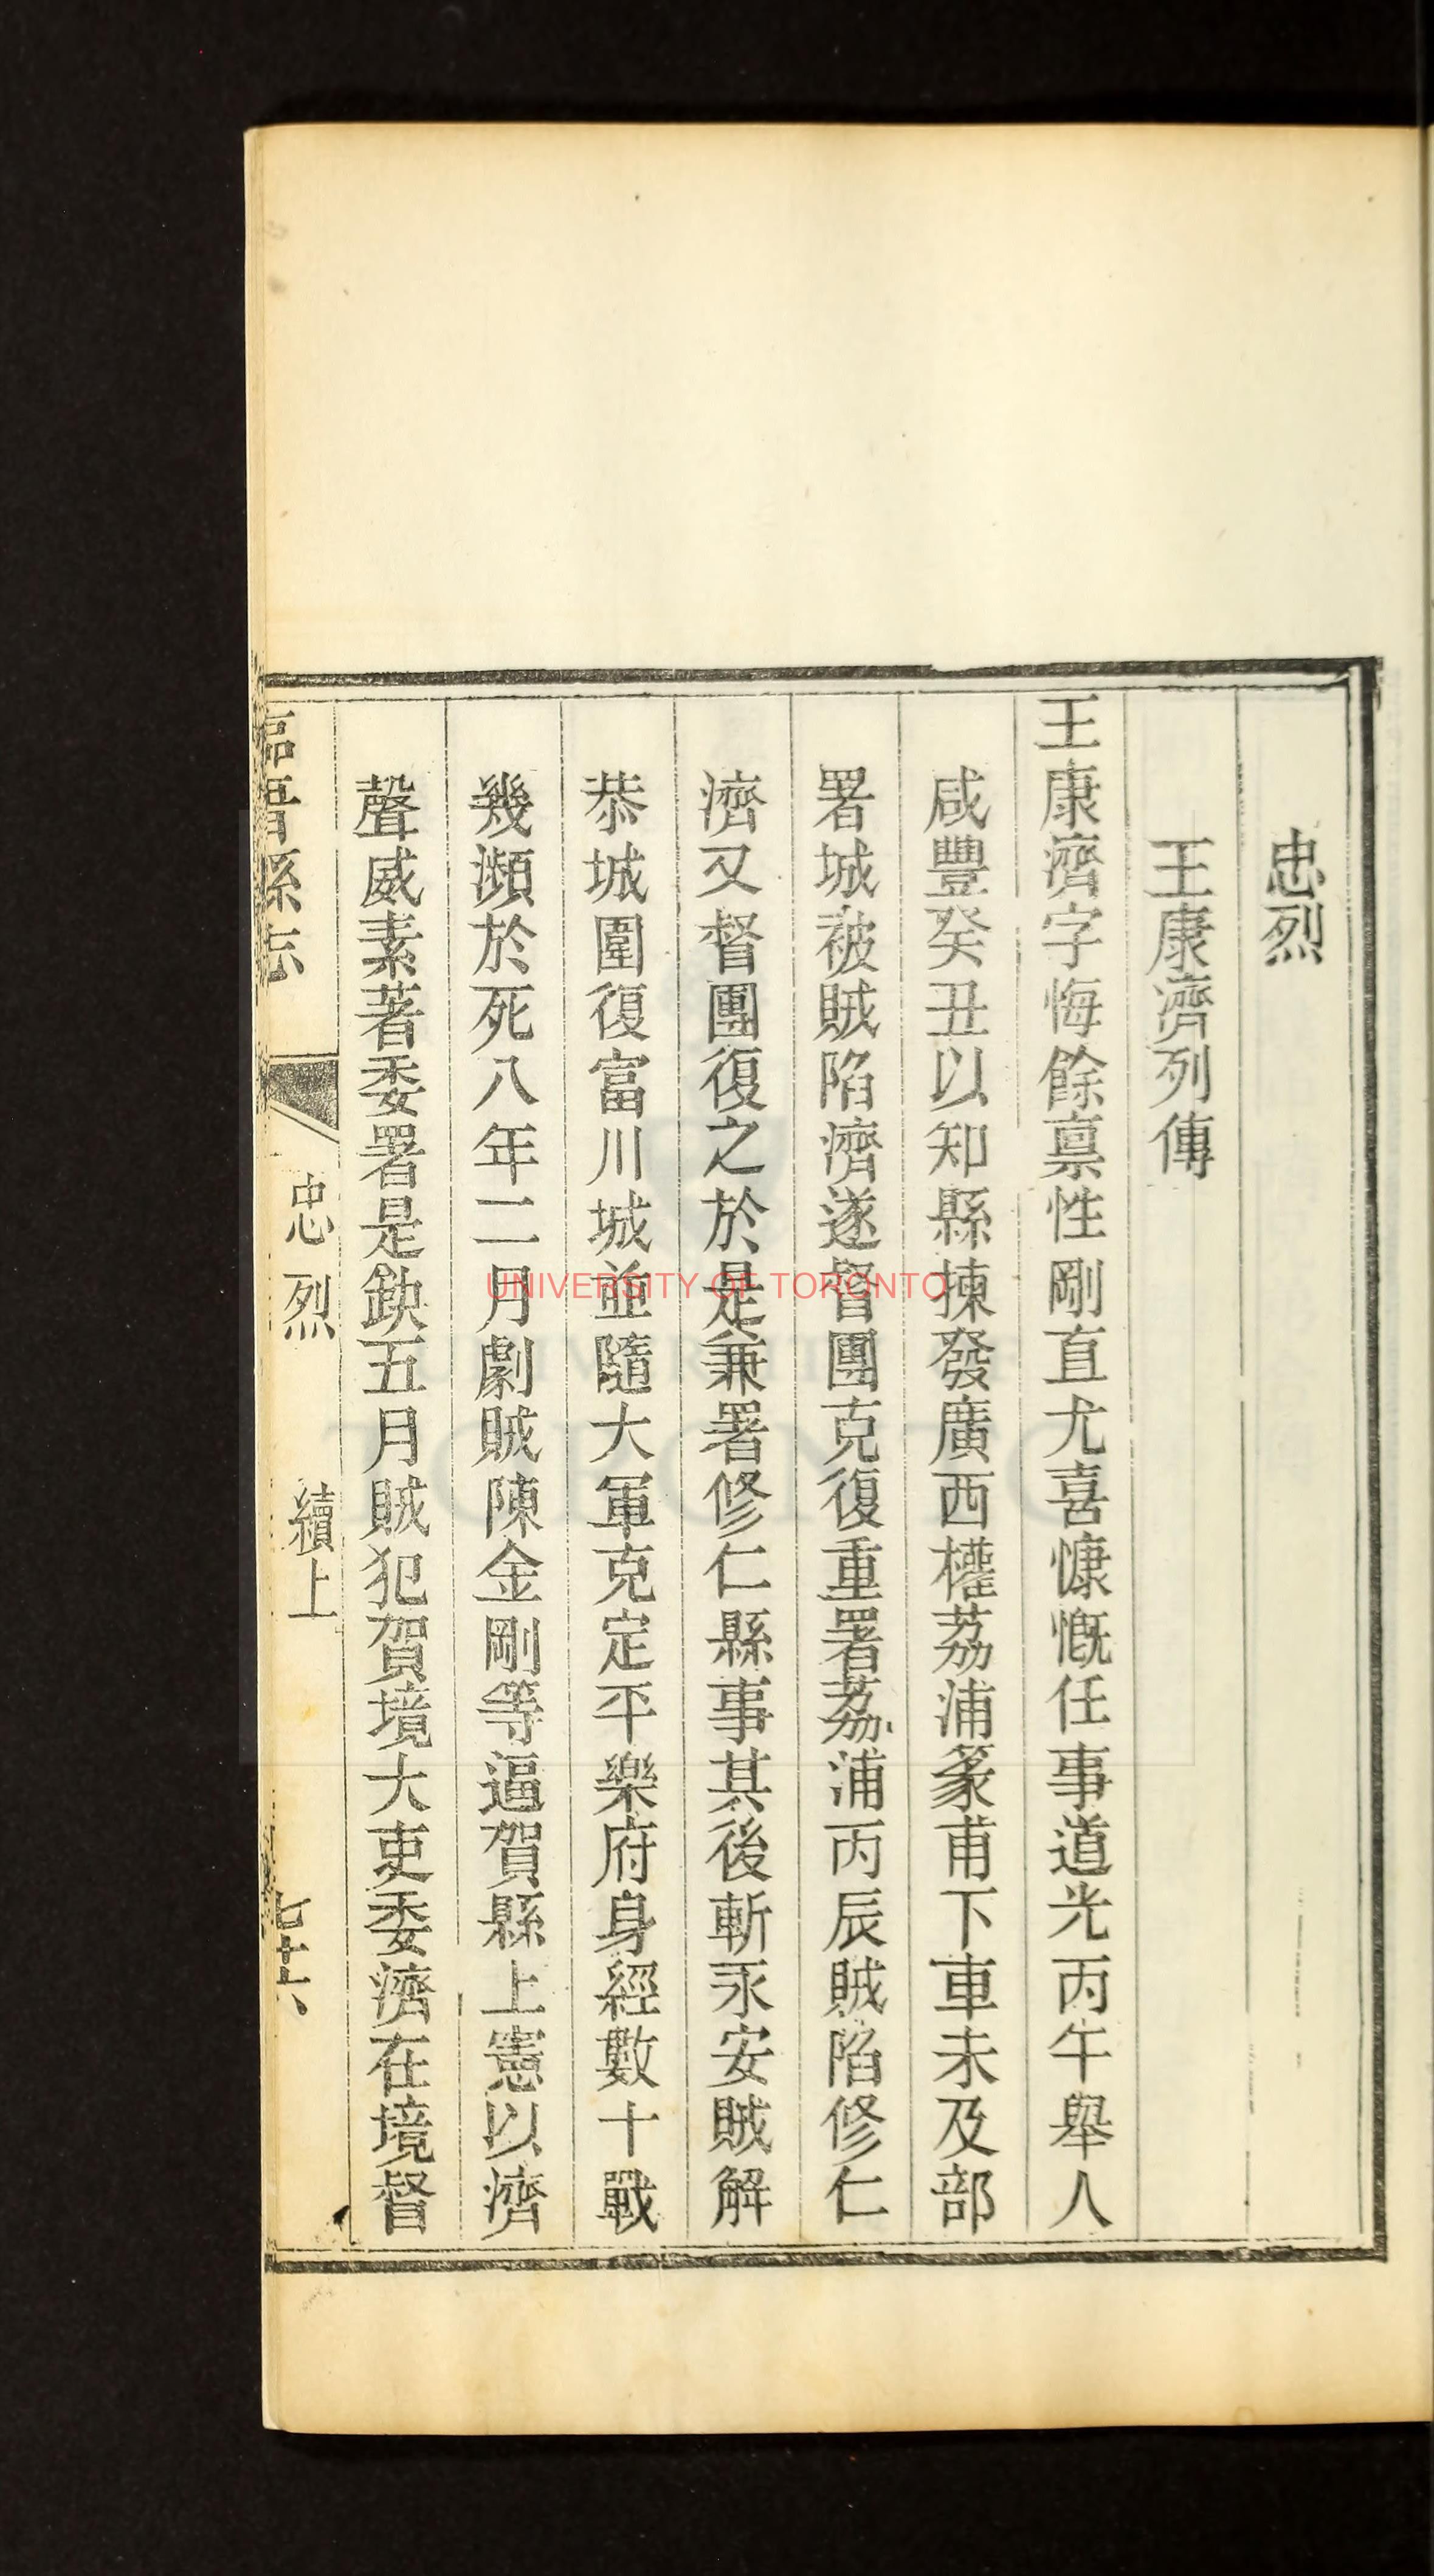 忠烈
王康濟列傳
王康濟字悔餘禀性剛直尤喜慷慨任事道光丙午舉人
咸豐癸丑以知縣揀發廣西權荔浦篆甫下車未及部
署城被賊陷濟遂督團克復重署荔浦丙辰賊陷修仁
濟又督團復之於是兼署修仁縣事其後斬永安賊解
恭城圍復富川城並隨大軍克定平樂府身經數十戰
幾瀕於死八年二月劇賊陳金剛等逼賀縣上憲以濟
聲威素著委署是缺五月賊犯賀境大吏委濟在境督
臨晋縣志
忠烈
續上
七十六
UNIVERSITY OF TORONTO